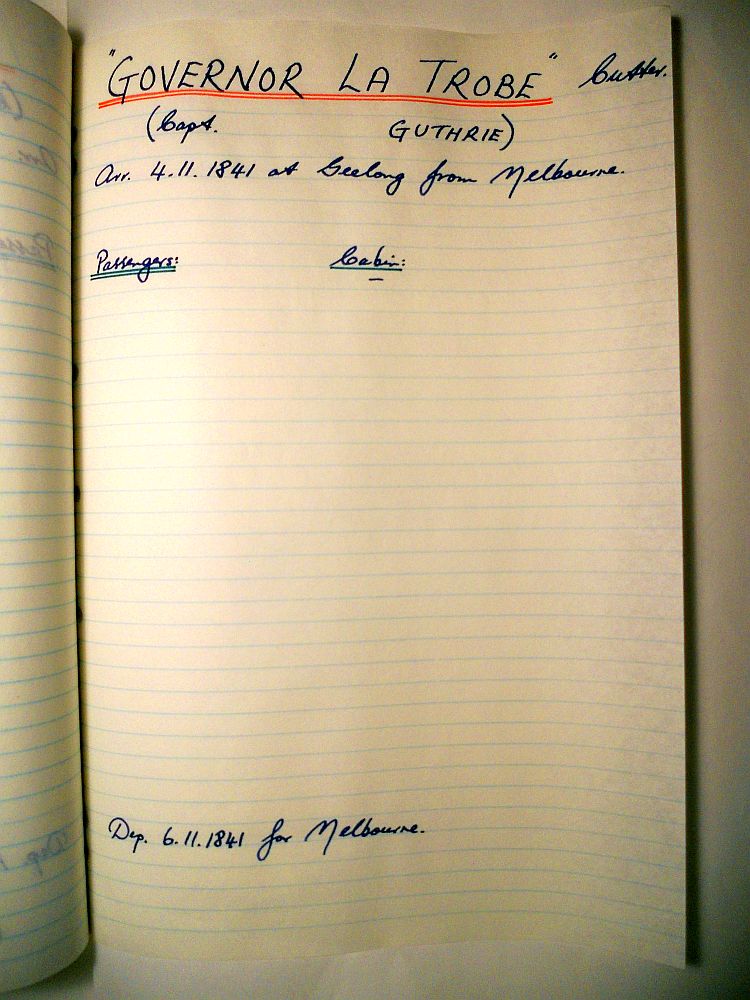 "GOVERNOR LA TROBE" Cutter.
(Capt. GUTHRIE)
Arr. 4.11.1841 at Geelong from Melbourne.
Passengers: Cabin:
—
Dep. 6.11.1841 for Melbourne.